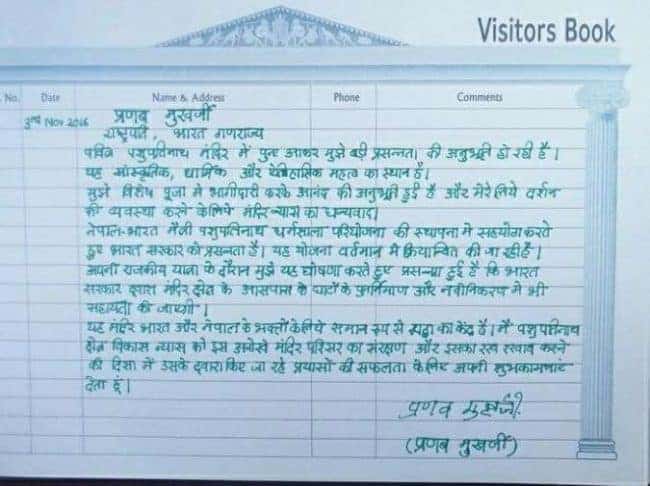 Visitors Book
No. Date Name & Address Phone Comments
3rd Nov 2016 प्रणब मुखर्जी
राष्ट्रपति, भारत गणराज्य
पवित्र पशुपतिनाथ मंदिर में पुनः आकर मुझे बड़ी प्रसन्नता की अनुभूती हो रही है।
यह सांस्कृतिक, धार्मिक और ऐतिहासिक महत्व का स्थान है।
मुझे विशेष पूजा में भागीदारी करके आनंद की अनुभूती हुई है और मेरे लिये दर्शन
की व्यवस्था करने के लिये मंदिर न्यास का धन्यवाद।
नेपाल-भारत मैत्री पशुपतिनाथ धर्मसाला परियोजना की स्थापना में सहयोग करते
हुए भारत सरकार को प्रसन्नता है। यह योजना वर्तमान में क्रियान्वित की जा रही है।
अपनी राजकीय यात्रा के दौरान मुझे यह घोषणा करते हुए प्रसन्नता हुई है कि भारत
सरकार द्वारा मंदिर क्षेत्र के आसपास के घाटों के पुर्ननिर्माण और नवीनिकरण में भी
सहायता की जाएगी।
यह मंदिर भारत और नेपाल के भक्तों के लिये समान रूप से श्रद्धा का केंद्र है। मैं पशुपतिनाथ
क्षेत्र विकास न्यास को इस अनोखे मंदिर परिसर का संरक्षण और इसका रख रखाव करने
की दिशा में उसके द्वारा किए जा रहे प्रयासों की सफलता के लिए अपनी शुभकामनाएं
देता हूं।
प्रणब मुखर्जी
(प्रणब मुखर्जी)